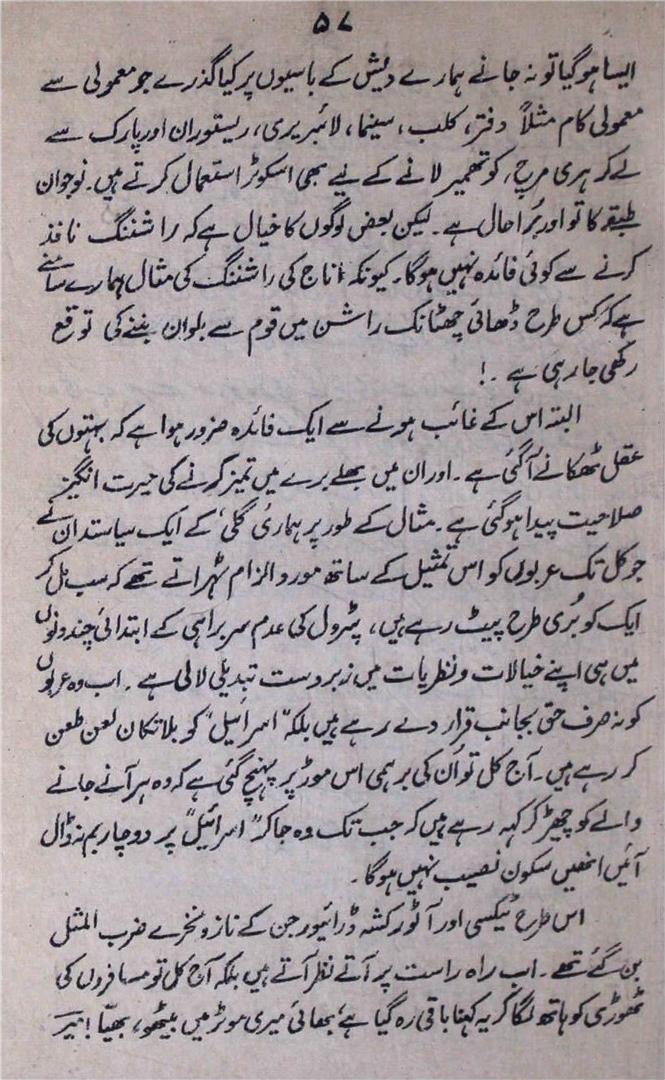 ۵۷
ایسا ہو گیا تو نہ جانے ہمارے دیش کے باسیوں پر کیا گذرے جو معمولی سے
معمولی کام مثلاً دفتر، کلب، سینما، لائبریری، ریستوران اور پارک سے
لے کر ہری مرچ، کوتھمیر لانے کے لیے بھی اسکوٹر استعمال کرتے ہیں۔ نوجوان
طبقہ کا تو اور بُرا حال ہے۔ لیکن بعض لوگوں کا خیال ہے کہ راشننگ نافذ
کرنے سے کوئی فائدہ نہیں ہوگا۔ کیونکہ اناج کی راشننگ کی مثال ہمارے سامنے
ہے کہ کس طرح ڈھائی چھٹانک راشن میں قوم سے بلوان بننے کی توقع
رکھی جا رہی ہے۔!
البتہ اس کے غائب ہونے سے ایک فائدہ ضرور ہوا ہے کہ بہتوں کی
عقل ٹھکانے آ گئی ہے۔ اور ان میں بھلے برے میں تمیز کرنے کی حیرت انگیز
صلاحیت پیدا ہو گئی ہے۔ مثال کے طور پر ہماری گلی کے ایک سیاستدان نے
جو کل تک عربوں کو اس تمثیل کے ساتھ مورد الزام ٹہراتے تھے کہ سب مل کر
ایک کو بُری طرح پیٹ رہے ہیں، پٹرول کی عدم سربراہی کے ابتدائی چند دنوں
میں ہی اپنے خیالات و نظریات میں زبردست تبدیلی لالی ہے۔ اب وہ عربوں
کو نہ صرف حق بجانب قرار دے رہے ہیں بلکہ "اسرائیل" کو بلا تکان لعن طعن
کر رہے ہیں۔ آج کل تو اُن کی برہمی اس موڑ پر پہنچ گئی ہے کہ وہ ہر آنے جانے
والے کو چھیڑ کر کہہ رہے ہیں کہ جب تک وہ جا کر "اسرائیل" پر دو چار بم نہ ڈال
آئیں انھیں سکون نصیب نہیں ہوگا۔
اس طرح ٹیکسی اور آٹو رکشہ ڈرائیور جن کے ناز و نخرے ضرب المثل
بن گئے تھے۔ اب راہ راست پر آتے نظر آتے ہیں بلکہ آج کل تو مسافروں کی
ٹھوڑی کو ہاتھ لگا کر یہ کہنا باقی رہ گیا ہے، بھائی میری موٹر میں بیٹھو، بھیّا!